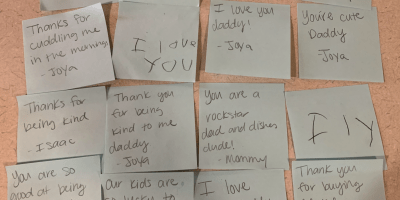 Thanks for
cuddling me
in the mornings
- Joya
I love
YOU
I love you
daddy!
- Joya
You're cute
Daddy
- Joya
Thanks for
being kind
- Isaac
Thank you
for being
kind to me
daddy
- Joya
You are a
rockstar
dad and dishes
dude!
- Mommy
I l y
You are so
good at being
Our kids are
so lucky to
I love
Thank you
for buying